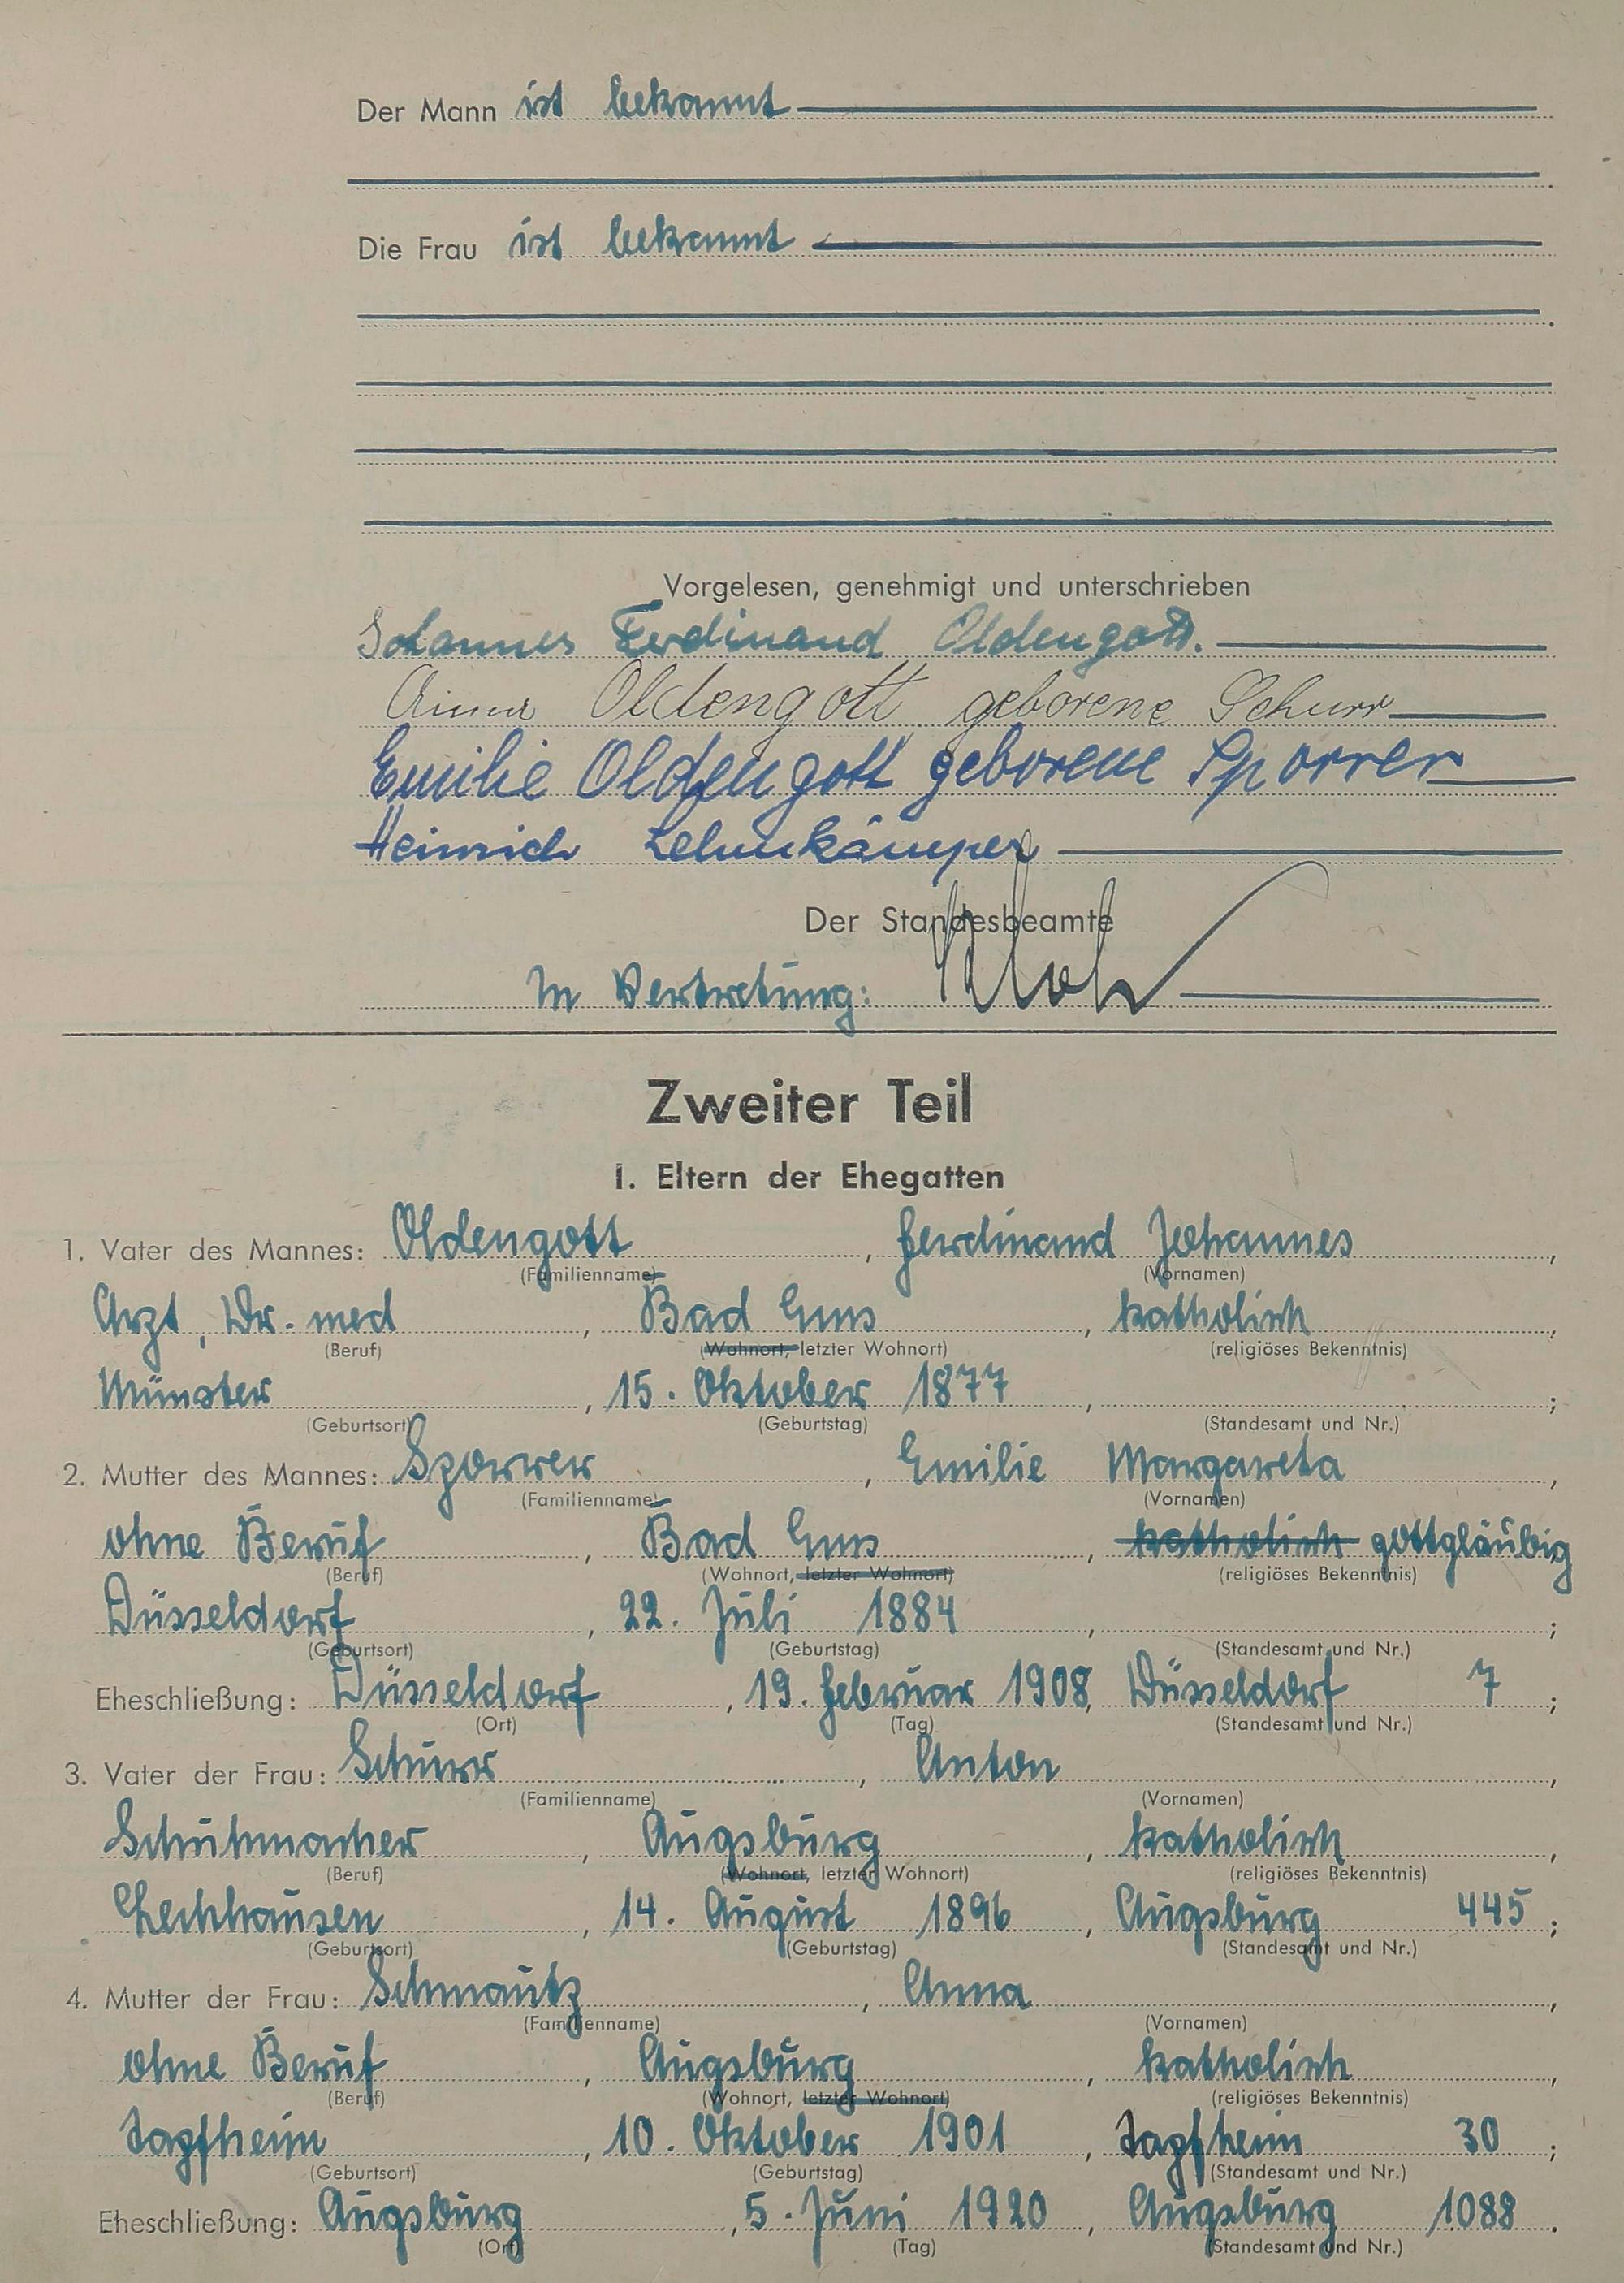 Der Mann ist bekannt
Die Frau ist bekannt
Vorgelesen, genehmigt und unterschrieben
Johannes Ferdinand Oldengott.
Anna Oldengott geborene Schurr
Emilie Oldengott geborene Sporrer
Heinrich Lehmkämper
Der Standesbeamte
In Vertretung:
Zweiter Teil
I. Eltern der Ehegatten
1. Vater des Mannes: Oldengott, Ferdinand Johannes,
(Familienname) (Vornamen)
Arzt, Dr. med, Bad Ems, katholisch,
(Beruf) (Wohnort, letzter Wohnort) (religiöses Bekenntnis)
Münster, 15. Oktober 1877, ;
(Geburtsort) (Geburtstag) (Standesamt und Nr.)
2. Mutter des Mannes: Sporrer, Emilie Margareta,
(Familienname) (Vornamen)
ohne Beruf, Bad Ems, katholisch gottgläubig
(Beruf) (Wohnort, letzter Wohnort) (religiöses Bekenntnis)
Düsseldorf, 22. Juli 1884, ;
(Geburtsort) (Geburtstag) (Standesamt und Nr.)
Eheschließung: Düsseldorf, 19. Februar 1908, Düsseldorf 7;
(Ort) (Tag) (Standesamt und Nr.)
3. Vater der Frau: Schurr, Anton,
(Familienname) (Vornamen)
Schuhmacher, Augsburg, katholisch,
(Beruf) (Wohnort, letzter Wohnort) (religiöses Bekenntnis)
Lechhausen, 14. August 1896, Augsburg 445;
(Geburtsort) (Geburtstag) (Standesamt und Nr.)
4. Mutter der Frau: Schmautz, Anna,
(Familienname) (Vornamen)
ohne Beruf, Augsburg, katholisch,
(Beruf) (Wohnort, letzter Wohnort) (religiöses Bekenntnis)
Tapfheim, 10. Oktober 1901, Tapfheim 30;
(Geburtsort) (Geburtstag) (Standesamt und Nr.)
Eheschließung: Augsburg, 5. Juni 1920, Augsburg 1088.
(Ort) (Tag) (Standesamt und Nr.)